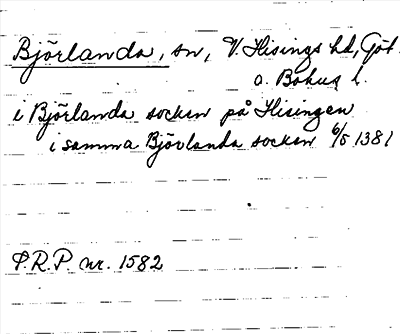 Björlanda, sn, V. Hisings hd, Göt.
o. Bohus l.
i Björlanda socken på Hisingen
i samma Björlanda socken 6/5 1381
P.R.P. nr. 1582